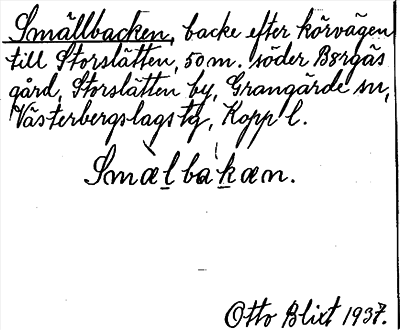 Smällbacken, backe efter körvägen
till Storslätten, 50 m. söder Bergås
gård, Storslätten by, Grangärde sn,
Västerbergslags tg, Kopp l.
Smælbakæn.
Otto Blixt 1937.